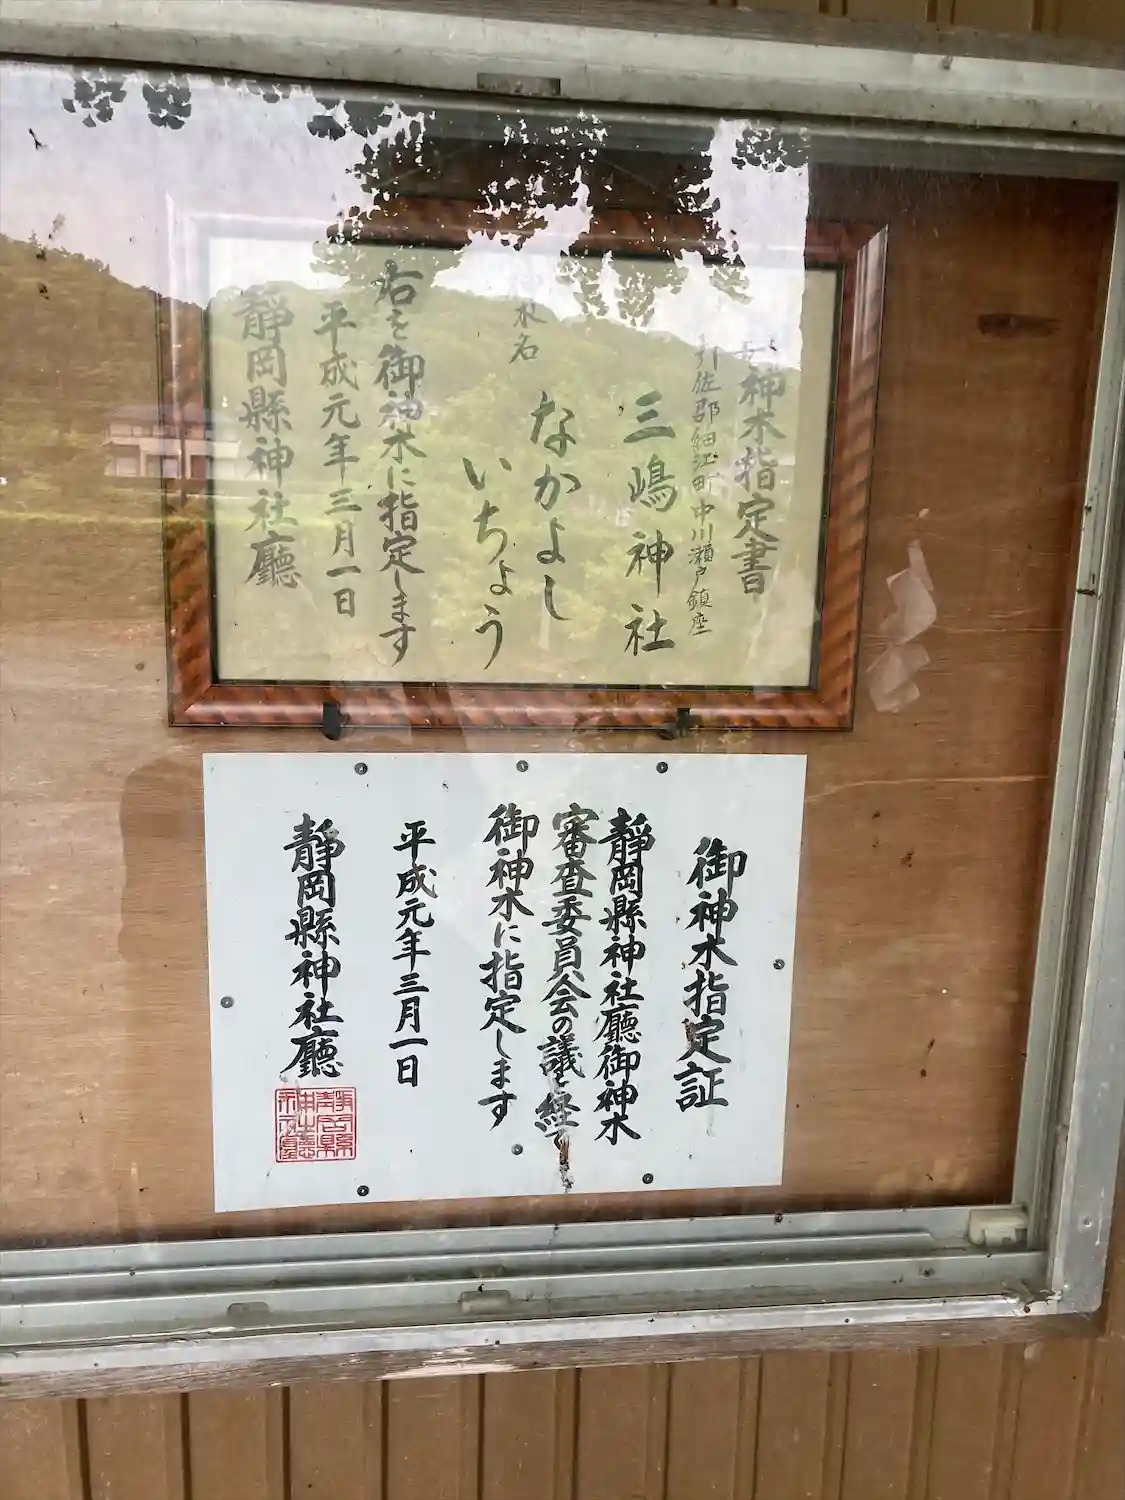 御神木指定書
引佐郡細江町中川瀬戸鎮座
三嶋神社
御神木名
なかよし
いちょう
右を御神木に指定します
平成元年三月一日
靜岡縣神社廳
御神木指定証
靜岡縣神社廳御神木
審査委員会の議を経て
御神木に指定します
平成元年三月一日
靜岡縣神社廳